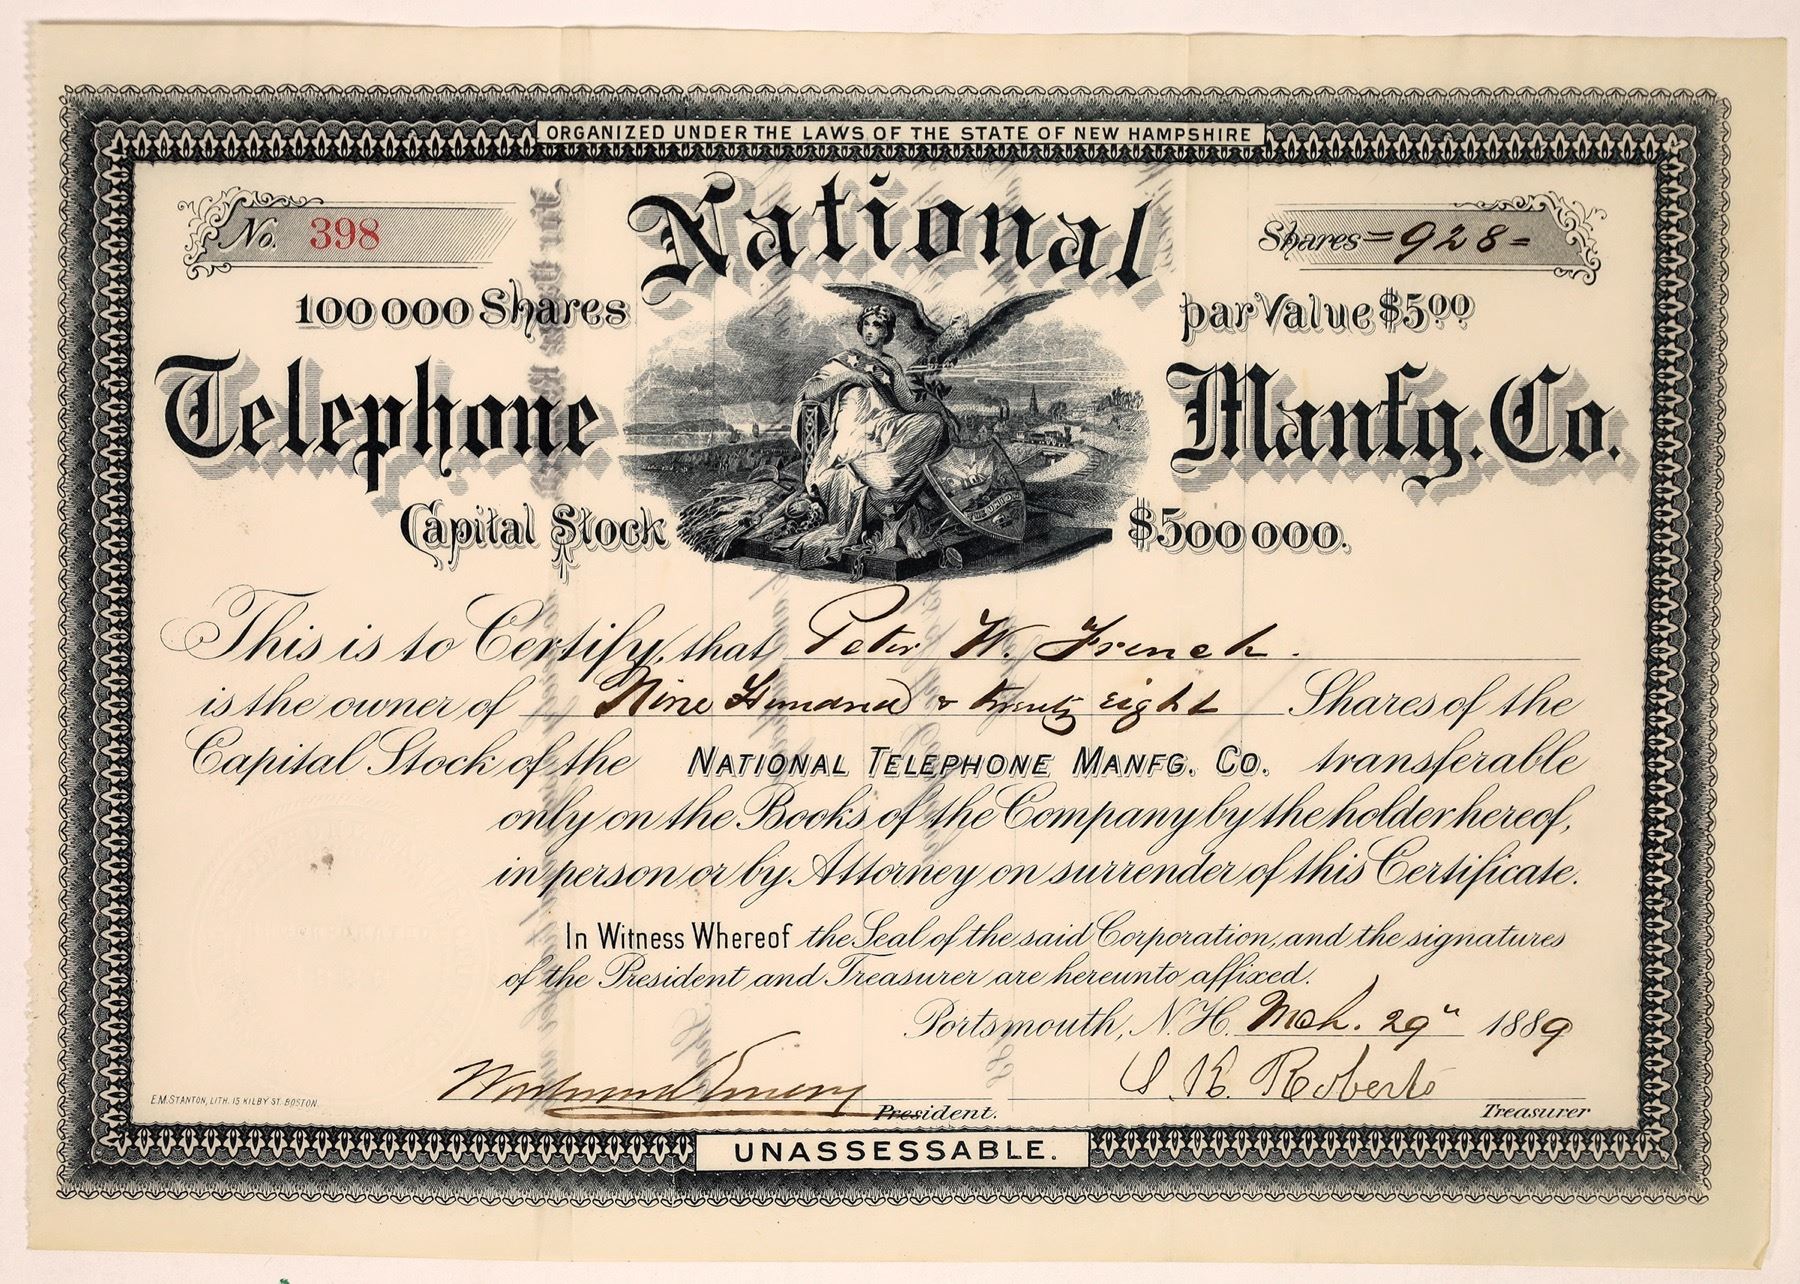 ORGANIZED UNDER THE LAWS OF THE STATE OF NEW HAMPSHIRE
No. 398
National
Shares = 928 =
100000 Shares
par Value $5.00
Telephone
Manfg. Co.
Capital Stock
$500000.
This is to Certify, that Peter W. French.
is the owner of Nine Hundred & twenty eight Shares of the
Capital Stock of the NATIONAL TELEPHONE MANFG. CO. transferable
only on the Books of the Company by the holder hereof,
in person or by Attorney on surrender of this Certificate.
In Witness Whereof the Seal of the said Corporation, and the signatures
of the President and Treasurer are hereunto affixed.
Portsmouth, N.H. Mch. 29" 1889
Emery
President.
S. K. Roberts
Treasurer
E.M. STANTON, LITH. 15 KILBY ST. BOSTON.
UNASSESSABLE.